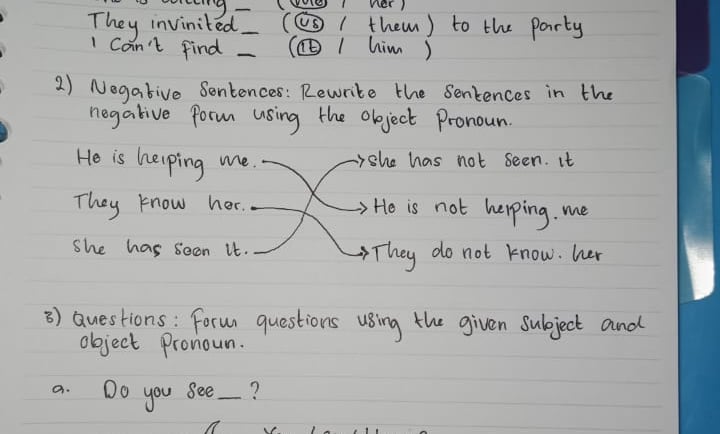 her)
They invinited _ (us / them) to the party
I Can't find _ (It / him)
2) Negative Sentences: Rewrite the Sentences in the
negative form using the object Pronoun.
He is helping me. She has not seen. it
They know her. He is not helping. me
She has seen it. They do not know. her
3) Questions: Form questions using the given Subject and
object Pronoun.
a. Do you See _ ?